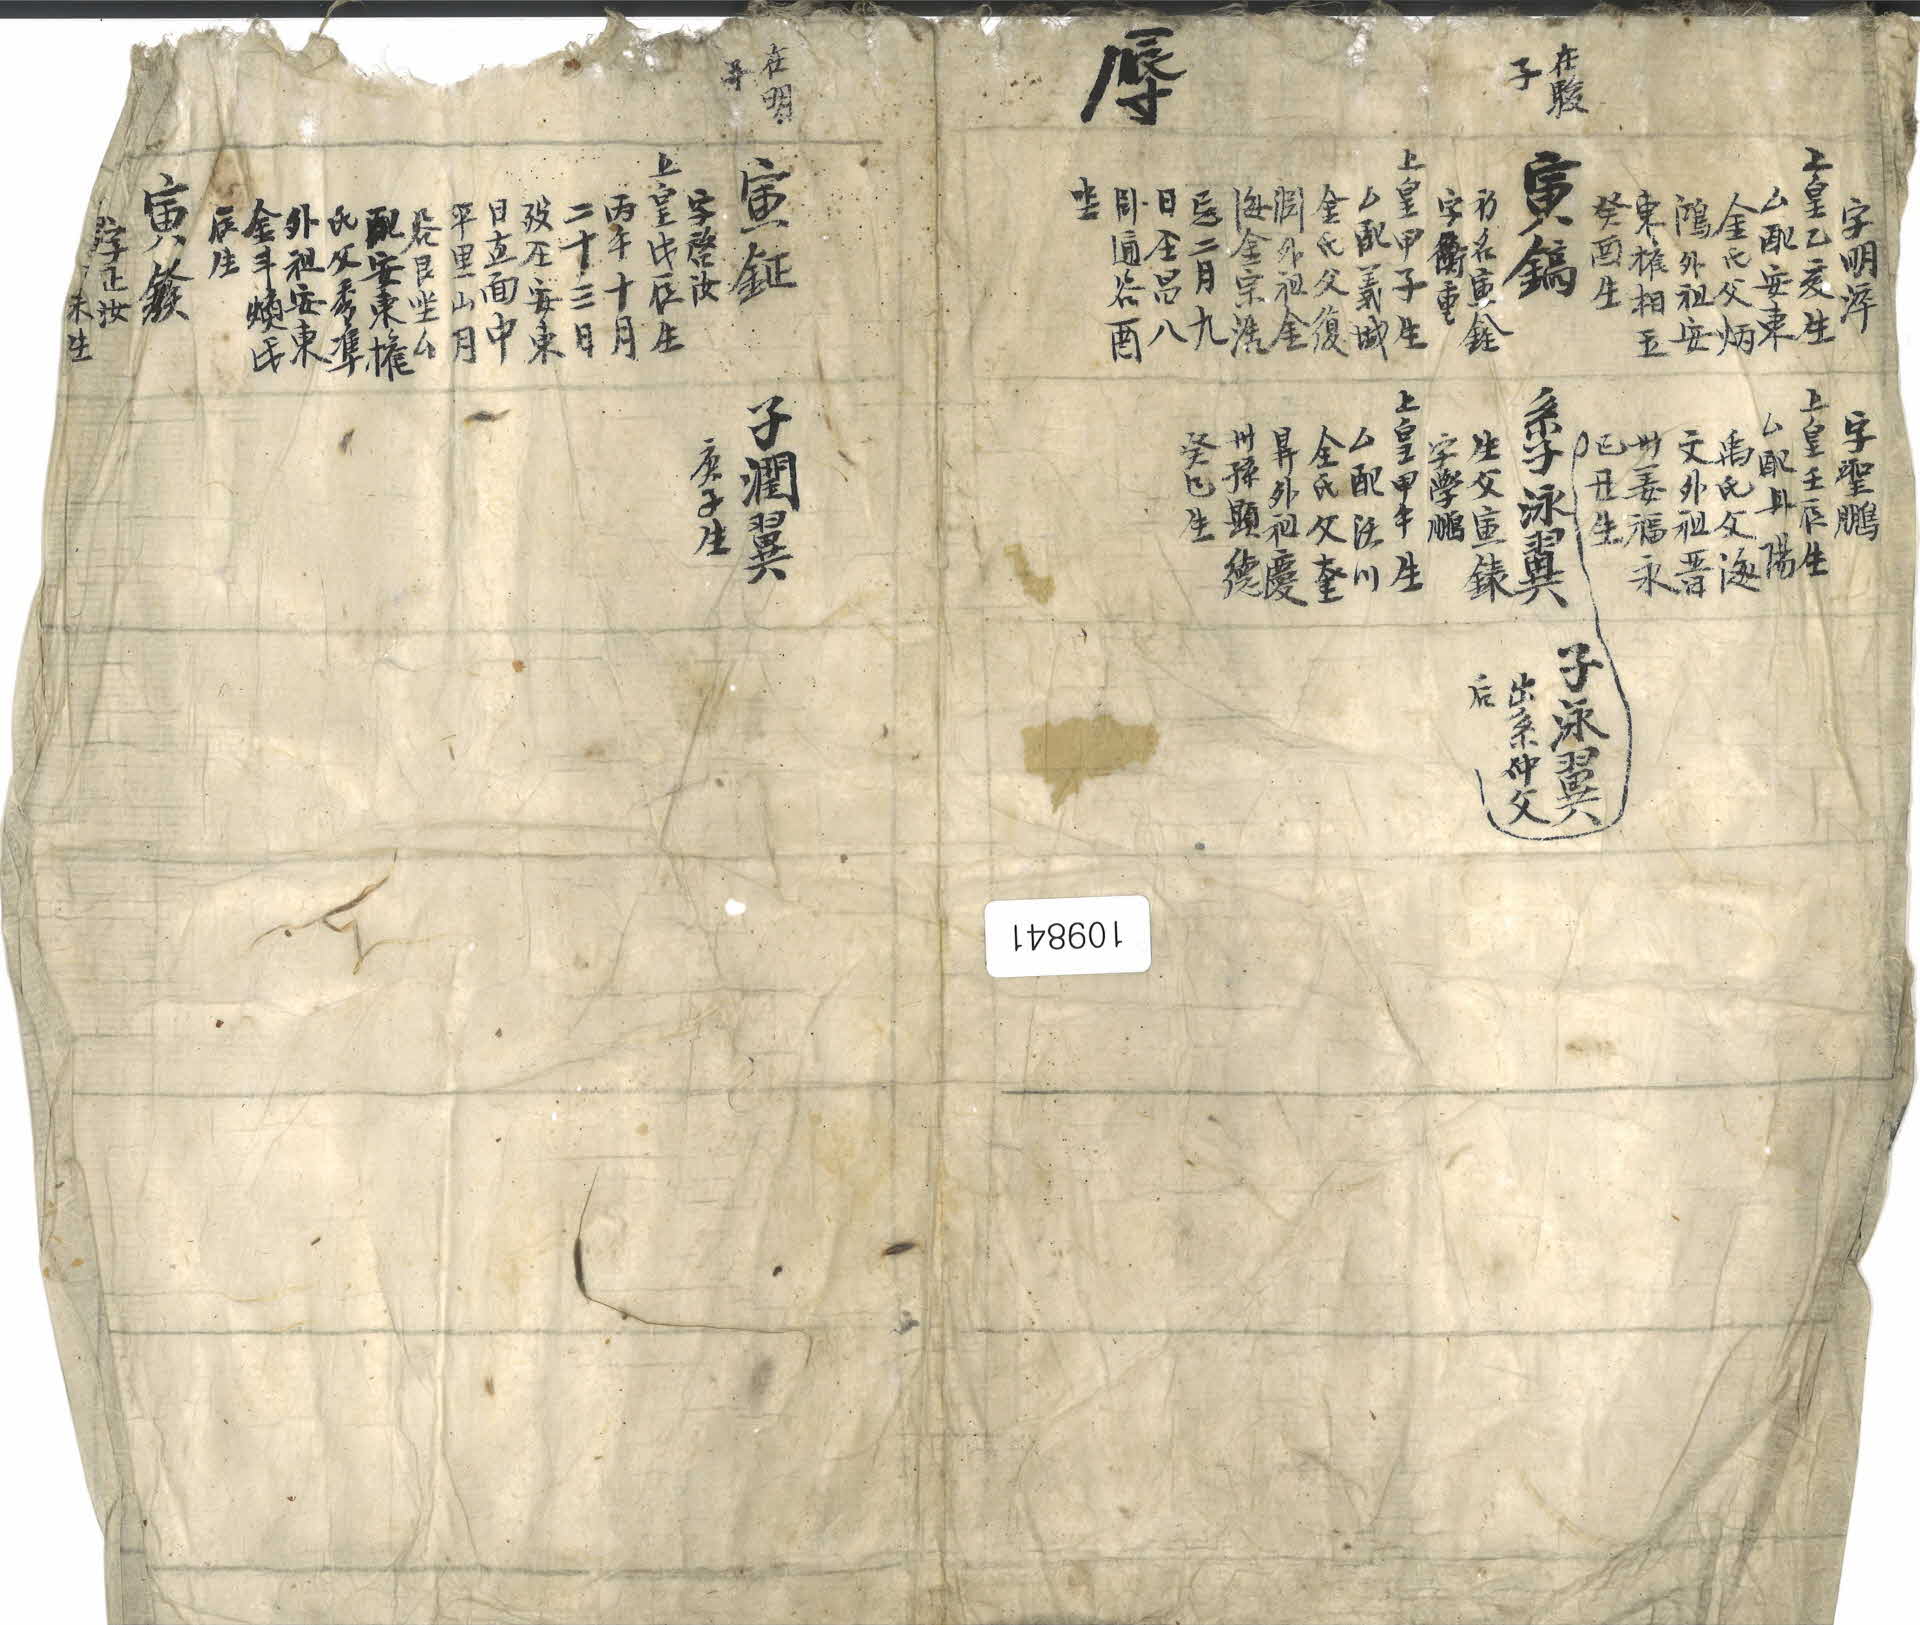 在駿
子
辱
在明
子
字明淳
上皇乙亥生
厶配安東
金氏父炳
鴻外祖安
東權相五
癸酉生
寅鎬
初名寅銓
字衡重
上皇甲子生
厶配義城
金氏父復
淵外祖金
海金宗浩
忌二月九
日全昌八
卧通谷酉
坐
寅鉦
字啓汝
上皇戊辰生
丙午十月
二十三日
歿全安東
日直面中
平里山月
谷艮坐厶
配安東權
氏父秀準
外祖安東
金斗煥氏
辰生
寅發
字正汝
未生
字聖鵬
上皇壬辰生
厶配丹陽
禹氏父海
文外祖晋
州姜福永
己丑生
系子泳翼
生父寅錄
字學鵬
上皇甲午生
厶配洪川
金氏父奎
昇外祖慶
州孫顯德
癸巳生
子潤翼
庚子生
子泳翼
出系仲父
后
109841